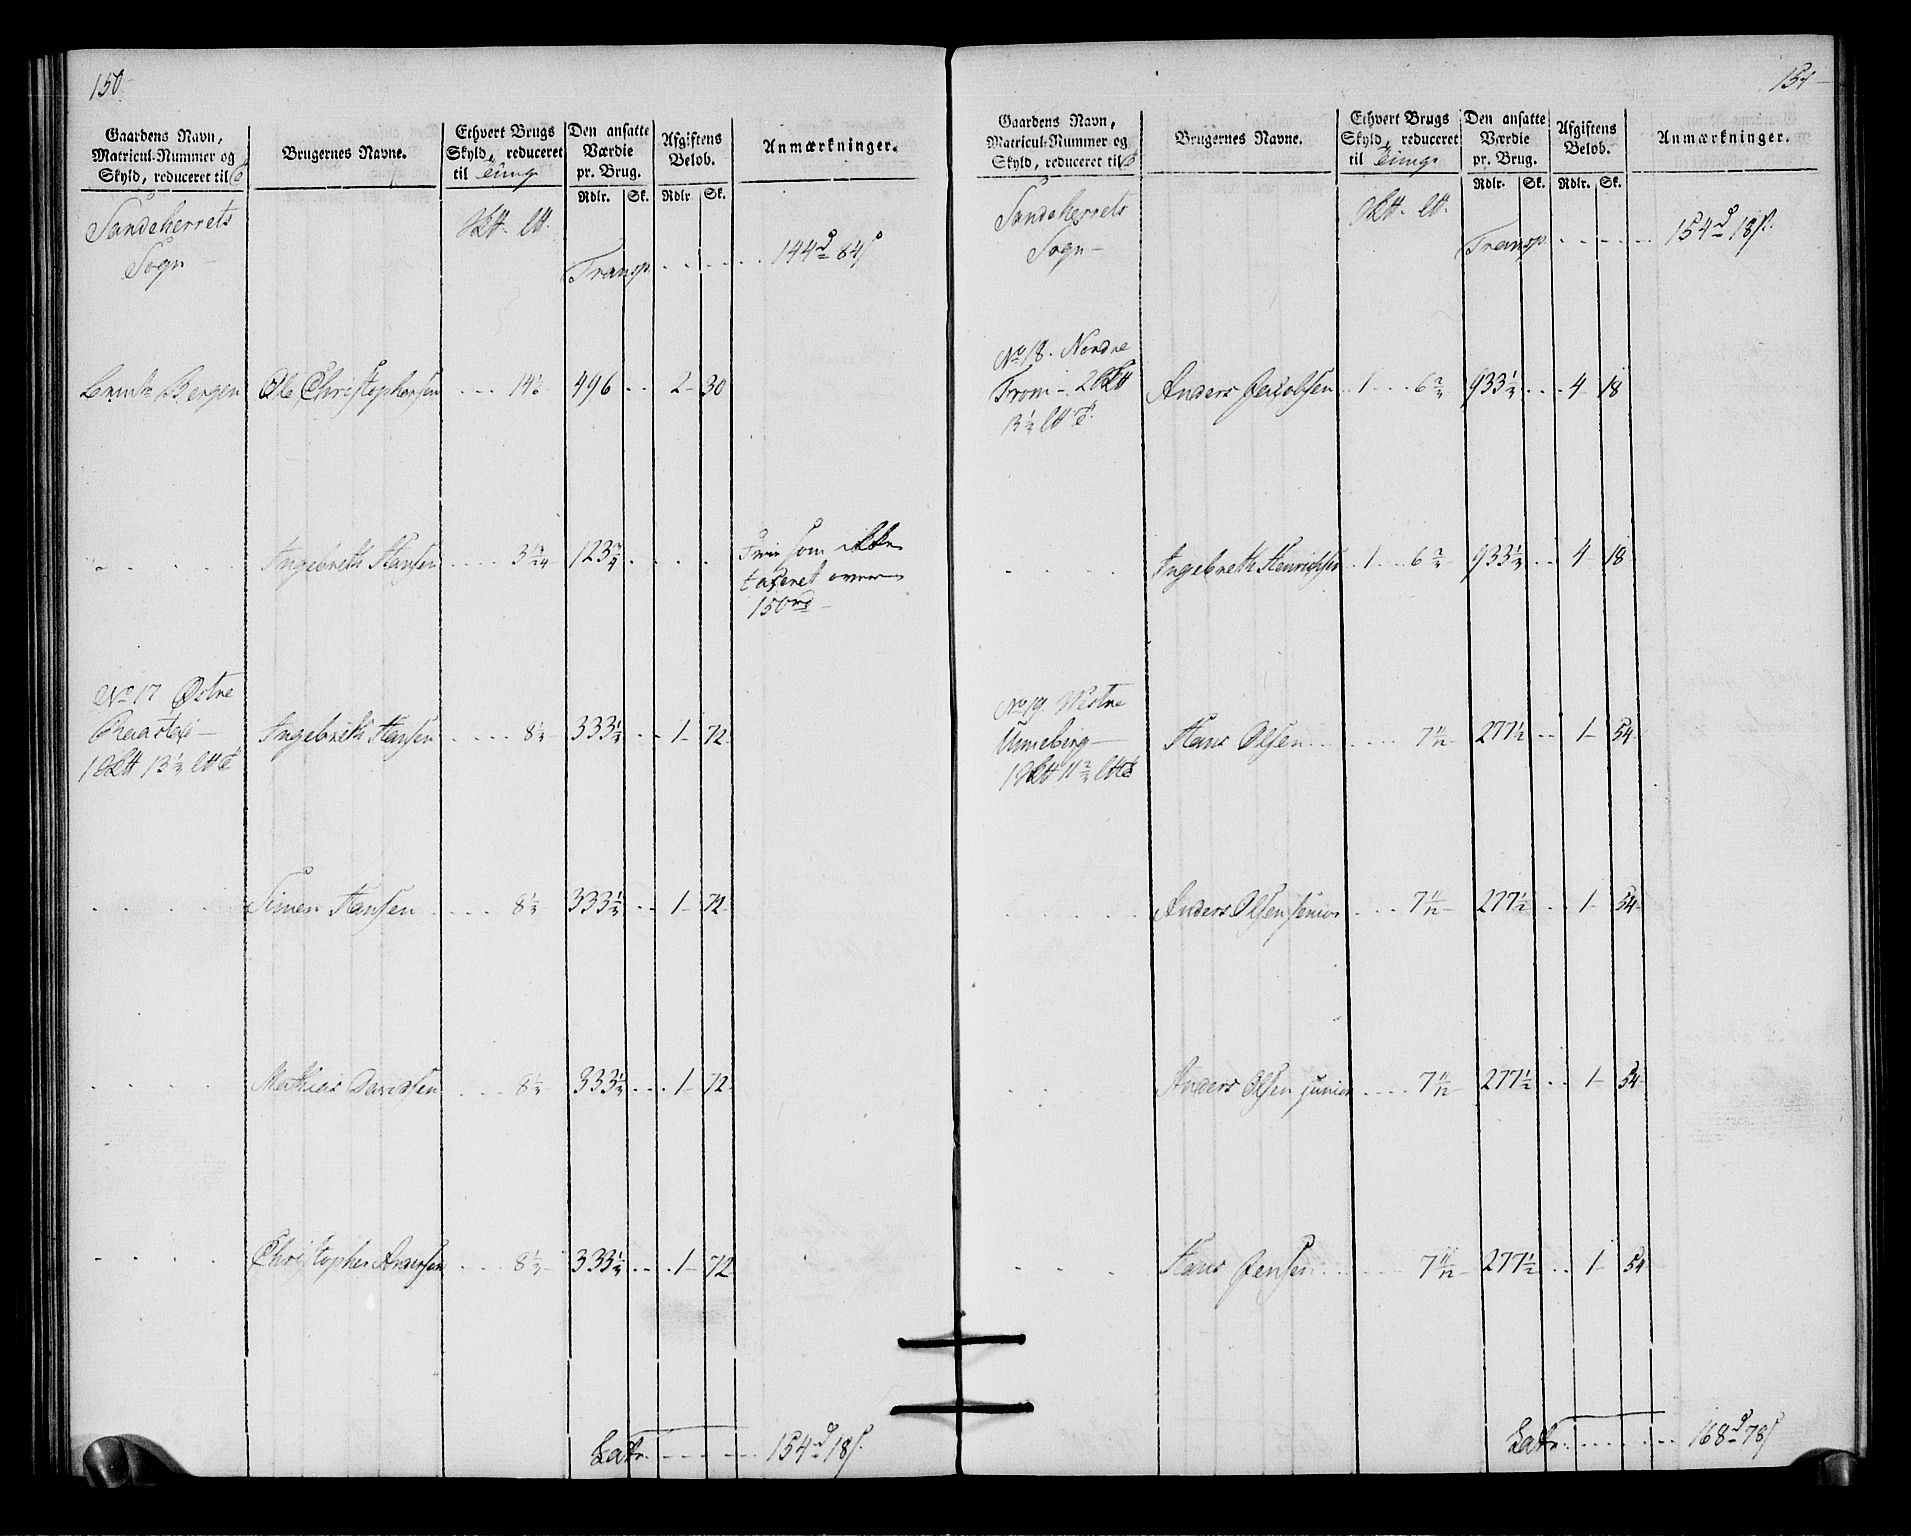 150
Gaardens Navn,
Matricul-Nummer og
Skyld, reduceret til
Brugernes Navne.
Ethvert Brugs
Skyld, reduceret
til Tunge
Den ansatte
Værdie
pr. Brug.
Rdlr. Sk.
Afgiftens
Beløb.
Rdlr Sk.
Anmærkninger.
Sandeherrets
Sogn
Transp. . . . . . 144 d 84 s
Bergen Ole Christophersen . . . 14 496 . . 2 - 30
. . . . Ingebreth Hansen . . . . 3 123 3/4 . . . . Frie som ikke
taxeret over
150 rd
No 17 Østre
13 1/3
Ingebreth Hansen . . . . 8 1/3 333 1/3 . . 1 - 72
. . . . Simen Hansen . . . . 8 1/3 333 1/3 . . 1 - 72
. . . . Mathias Davidsen . . . . 8 1/3 333 1/3 . . 1 - 72
. . . . Christopher Andersen . . . 8 1/3 333 1/3 . . 1 - 72
Latr. . . . . . 154 d 18 s
151
Gaardens Navn,
Matricul-Nummer og
Skyld, reduceret til
Brugernes Navne.
Ethvert Brugs
Skyld, reduceret
til Tunge
Den ansatte
Værdie
pr. Brug.
Rdlr. Sk.
Afgiftens
Beløb.
Rdlr. Sk.
Anmærkninger.
Sandeherrets
Sogn
Transp. . . . . . 154 d 18 s
No 18. Nordre
From
13 1/3
Anders Jacobsen 1 . . . 6 2/3 933 1/3 . . . 4 18
. . . . Ingebreth Henrichsen . . 1 . . . 6 2/3 933 1/3 . . 4 18
No 19. Westre
Unneberg
11 2/3
Hans Olsen . . . . . . 7 11/12 277 1/2 . . 1 - 54
. . . . Anders Olsen senior . . . 7 11/12 277 1/2 . . 1 - 54
. . Anders Olsen junior . . . . 7 11/12 277 1/2 . . 1 - 54
. . . . Hans Jensen . . . . 7 11/12 277 1/2 . . 1 - 54
Latr. . . . . . 168 d 78 s